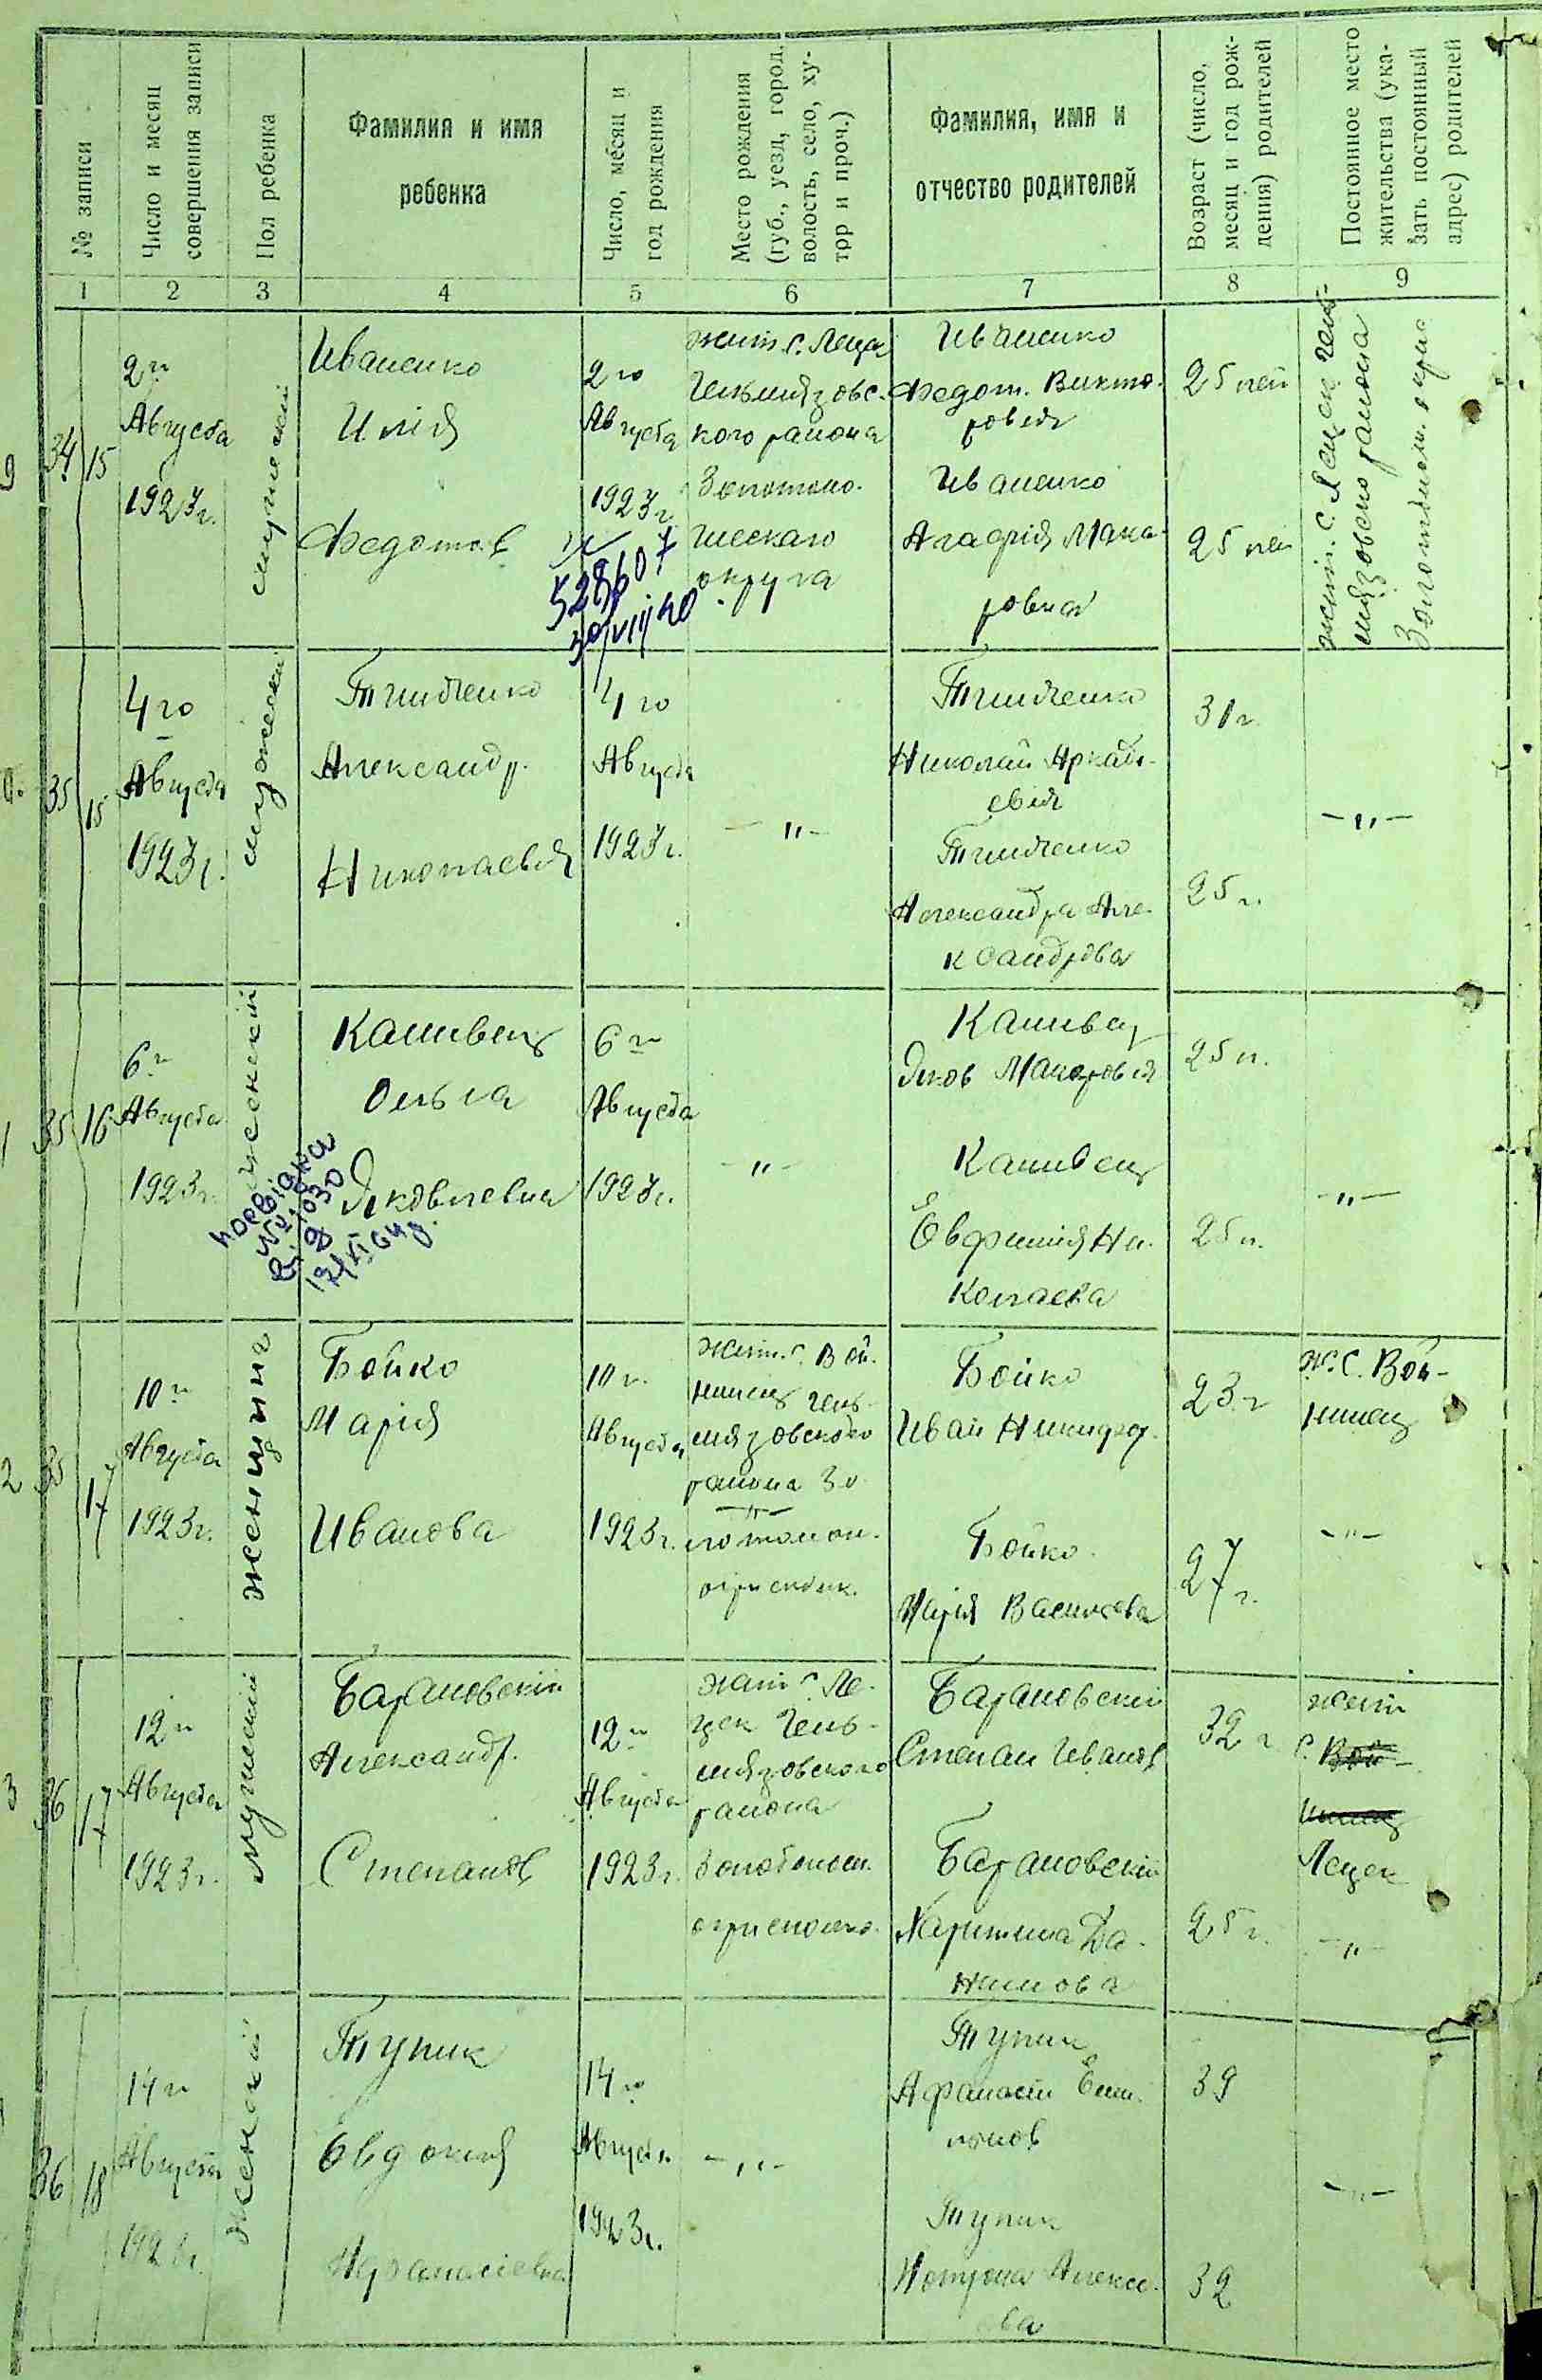 № записи
Число и месяц
совершения записи
Пол ребенка
Фамилия и имя
ребенка
Число, месяц и
год рождения
Место рождения
(губ., уезд, город,
волость, село, ху-
тор и проч.)
Фамилия, имя и
отчество родителей
Возраст (число,
месяц и год рож-
дения) родителей
Постоянное место
жительства (ука-
зать постоянный
адрес) родителей
1 2 3 4 5 6 7 8 9
34/15
2го
Августа
1923г.
мужеский
Иваненко
Илія
Федотов
2го
Августа
1923г.
528607
30/VII/40
жит. с. Леца
Гельмязовс-
кого района
Золотоно-
шескаго
округа
Иваненко
Федот. Викто-
рович
Иваненко
Агафія Мака-
ровна
25 лет
25 лет
жит. с. Лецек Гель-
мязовско района
Золотонош. окрис
35/15
4го
Августа
1923г.
мужески
Александр.
Николаевич
4го
Августа
1923г.
-"-
Николай Аркад-
евич
Александра Але-
ксандрова
31г.
25г.
-"-
35/16
6го
Августа
1923г.
женский
Канивец
Ольга
Яковлевна
№ 1030
6го
Августа
1923г.
-"-
Канивец
Яков Макарович
Канивец
Евфимія Ни-
колаева
25л.
25л.
-"-
35/17
10го
Августа
1923г.
женщина
Бойко
Марія
Иванова
10г.
Августа
1923г.
жит. с. Вой-
нинец Гель-
мязовского
района Зо-
лотонош.
Бойко
Иван Никифор.
Бойко
Марія Васильева
23г
27г.
ж. с. Вой-
нинец
-"-
36/17
12го
Августа
1923г.
мужский
Барановскій
Александр.
Степанов
12го
Августа
1923г.
жит с. Ле-
цек Гель-
мязовского
района
Золотонош.
окрисполко.
Барановскій
Степан Иванов
Барановскій
Харитина Да-
нилова
32г
25г.
жит
с. Вой-
нинец
Лецек
-"-
36/18
14го
Августа
1923г.
женский
Тупик
Евдокия
Афанасіевна
14го
Августа
1923г.
-"-
Тупик
Афанасій
Тупик
Алексе-
ева
39
32
-"-